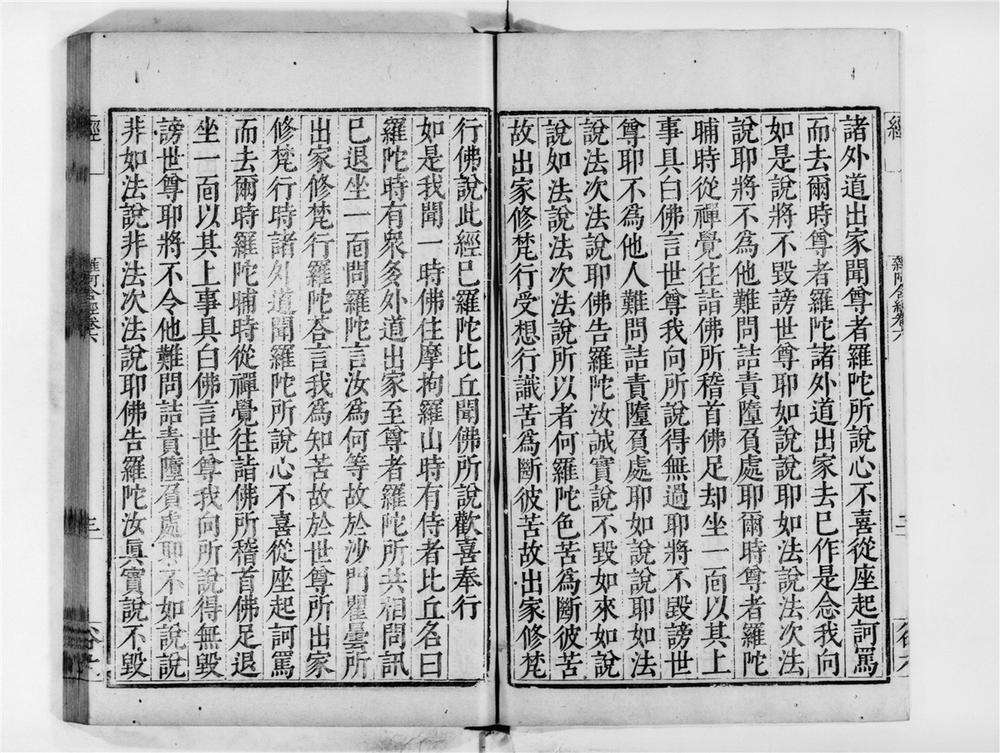 諸外道出家聞尊者羅陀所說心不喜從座起訶罵
而去爾時尊者羅陀諸外道出家去已作是念我向
如是說將不毀謗世尊耶如說說耶如法說法次法
說耶將不為他難問詰責墮負處耶爾時尊者羅陀
晡時從禪覺往詣佛所稽首佛足却坐一面以其上
事具白佛言世尊我向所說得無過耶將不毀謗世
尊耶不為他人難問詰責墮負處耶如說說耶如法
說法次法說耶佛告羅陀汝誠實說不毀如來如說
說如法說法次法說所以者何羅陀色苦為斷彼苦
故出家修梵行受想行識苦為斷彼苦故出家修梵
行佛說此經已羅陀比丘聞佛所說歡喜奉行
如是我聞一時佛住摩拘羅山時有侍者比丘名曰
羅陀時有衆多外道出家至尊者羅陀所共相問訊
已退坐一面問羅陀言汝為何等故於沙門瞿曇所
出家修梵行羅陀荅言我為知苦故於世尊所出家
修梵行時諸外道聞羅陀所說心不喜從座起訶罵
而去爾時羅陀晡時從禪覺往詣佛所稽首佛足退
坐一面以其上事具白佛言世尊我向所說得無毀
謗世尊耶將不令他難問詰責墮負處耶不如說說
非如法說非法次法說耶佛告羅陀汝眞實說不毀
經
雜阿含經卷六
三